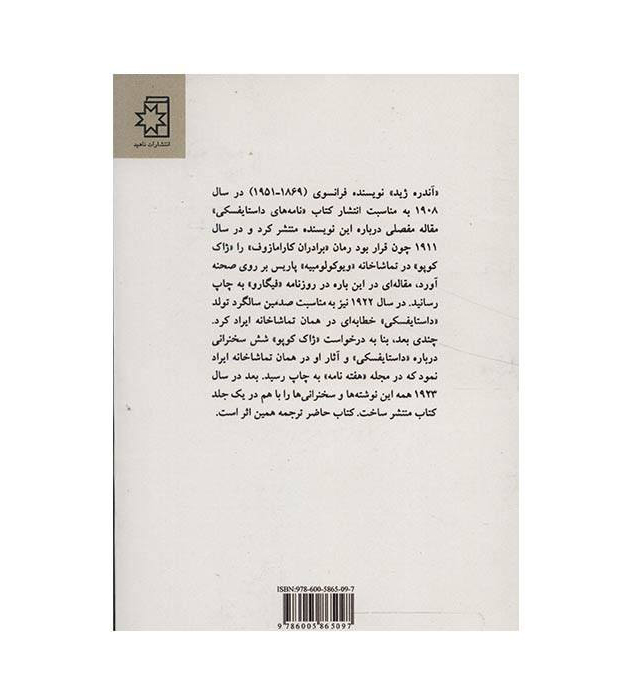 انتشارات ناهید
«آندره ژید» نویسنده فرانسوی (۱۸۶۹-۱۹۵۱) در سال
۱۹۰۸ به مناسبت انتشار کتاب «نامه‌های داستایفسکی»
مقاله مفصلی درباره این نویسنده منتشر کرد و در سال
۱۹۱۱ چون قرار بود رمان «برادران کارامازوف» را «ژاک
کوپو» در تماشاخانه «ویوکولومبیه» پاریس بر روی صحنه
آورد، مقاله‌ای در این باره در روزنامه «فیگارو» به چاپ
رسانید. در سال ۱۹۲۲ نیز به مناسبت صدمین سالگرد تولد
«داستایفسکی» خطابه‌ای در همان تماشاخانه ایراد کرد.
چندی بعد، بنا به درخواست «ژاک کوپو» شش سخنرانی
درباره «داستایفسکی» و آثار او در همان تماشاخانه ایراد
نمود که در مجله «هفته نامه» به چاپ رسید. بعد در سال
۱۹۲۳ همه این نوشته‌ها و سخنرانی‌ها را با هم در یک جلد
کتاب منتشر ساخت. کتاب حاضر ترجمه همین اثر است.
ISBN:978-600-5865-09-7
9 786005 865097